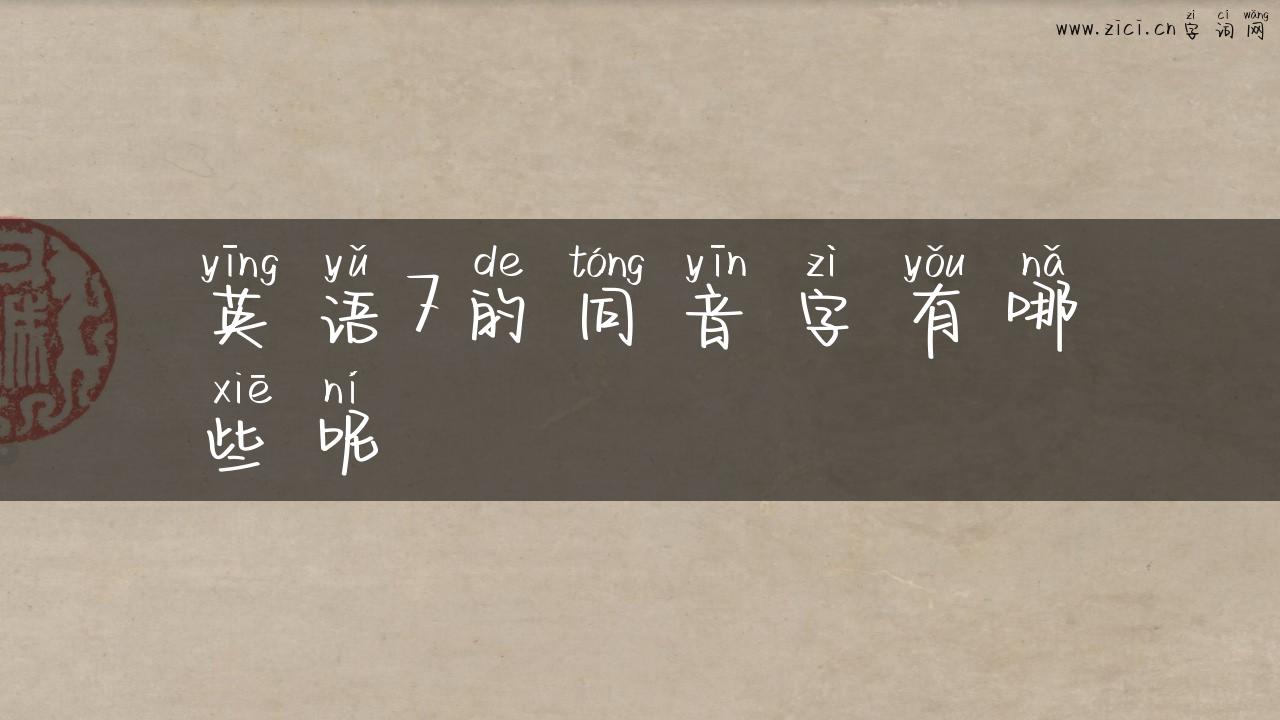 www.zici.cn zì cí wǎng 字词网
yīng yǔ de tóng yīn zì yǒu nǎ
英语7的同音字有哪
xiē ní
些呢